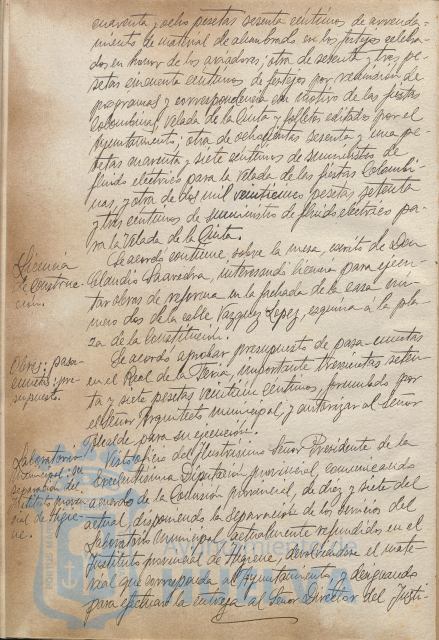 cuarenta y ocho pesetas sesenta céntimos de arrenda-
miento de material de alumbrado en los festejos celebra-
dos en honor de los aviadores; otra de setenta y tres pe-
setas cincuenta céntimos de festejos por remisión de
programas y correspondencia con motivo de las fiestas
Colombinas, Velada de la Cinta y folletos editados por el
Ayuntamiento; otra de ochocientas sesenta y una pe-
setas cuarenta y siete céntimos de suministros de
fluido eléctrico para la Velada de las fiestas Colombi-
nas, y otra de dos mil veinticinco pesetas setenta
y tres céntimos de suministro de fluido eléctrico pa-
ra la Velada de la Cinta.
Licencia
de construc-
ción.
Se acordó continúe sobre la mesa, escrito de Don
Claudio Saavedra, interesando licencia para ejecu-
tar obras de reforma en la fachada de la casa nú-
mero dos de la calle Vazquez Lopez, esquina á la pla-
za de la Constitución.
Obras: pasa-
cunetas: pre-
supuesto.
Se acordó aprobar presupuesto de pasa-cunetas
en el Real de la Feria, importante trescientas seten-
ta y siete pesetas veintiún céntimos, formulado por
el Señor Arquitecto municipal, y autorizar al Señor
Alcalde para su ejecución.
Laboratorio
municipal: su
separación del
Instituto provin-
cial de Higie-
ne.
Visto oficio del Ilustrísimo Señor Presidente de la
Excelentísima Diputación provincial, comunicando
acuerdo de la Comisión provincial, de diez y siete del
actual, disponiendo la separación de los servicios del
Laboratorio Municipal, actualmente refundidos en el
Instituto provincial de Higiene, devolviéndose el mate-
rial que corresponda al Ayuntamiento, y designando
para efectuar la entrega al Señor Director del Insti-
Ayuntamiento de
HUELVA